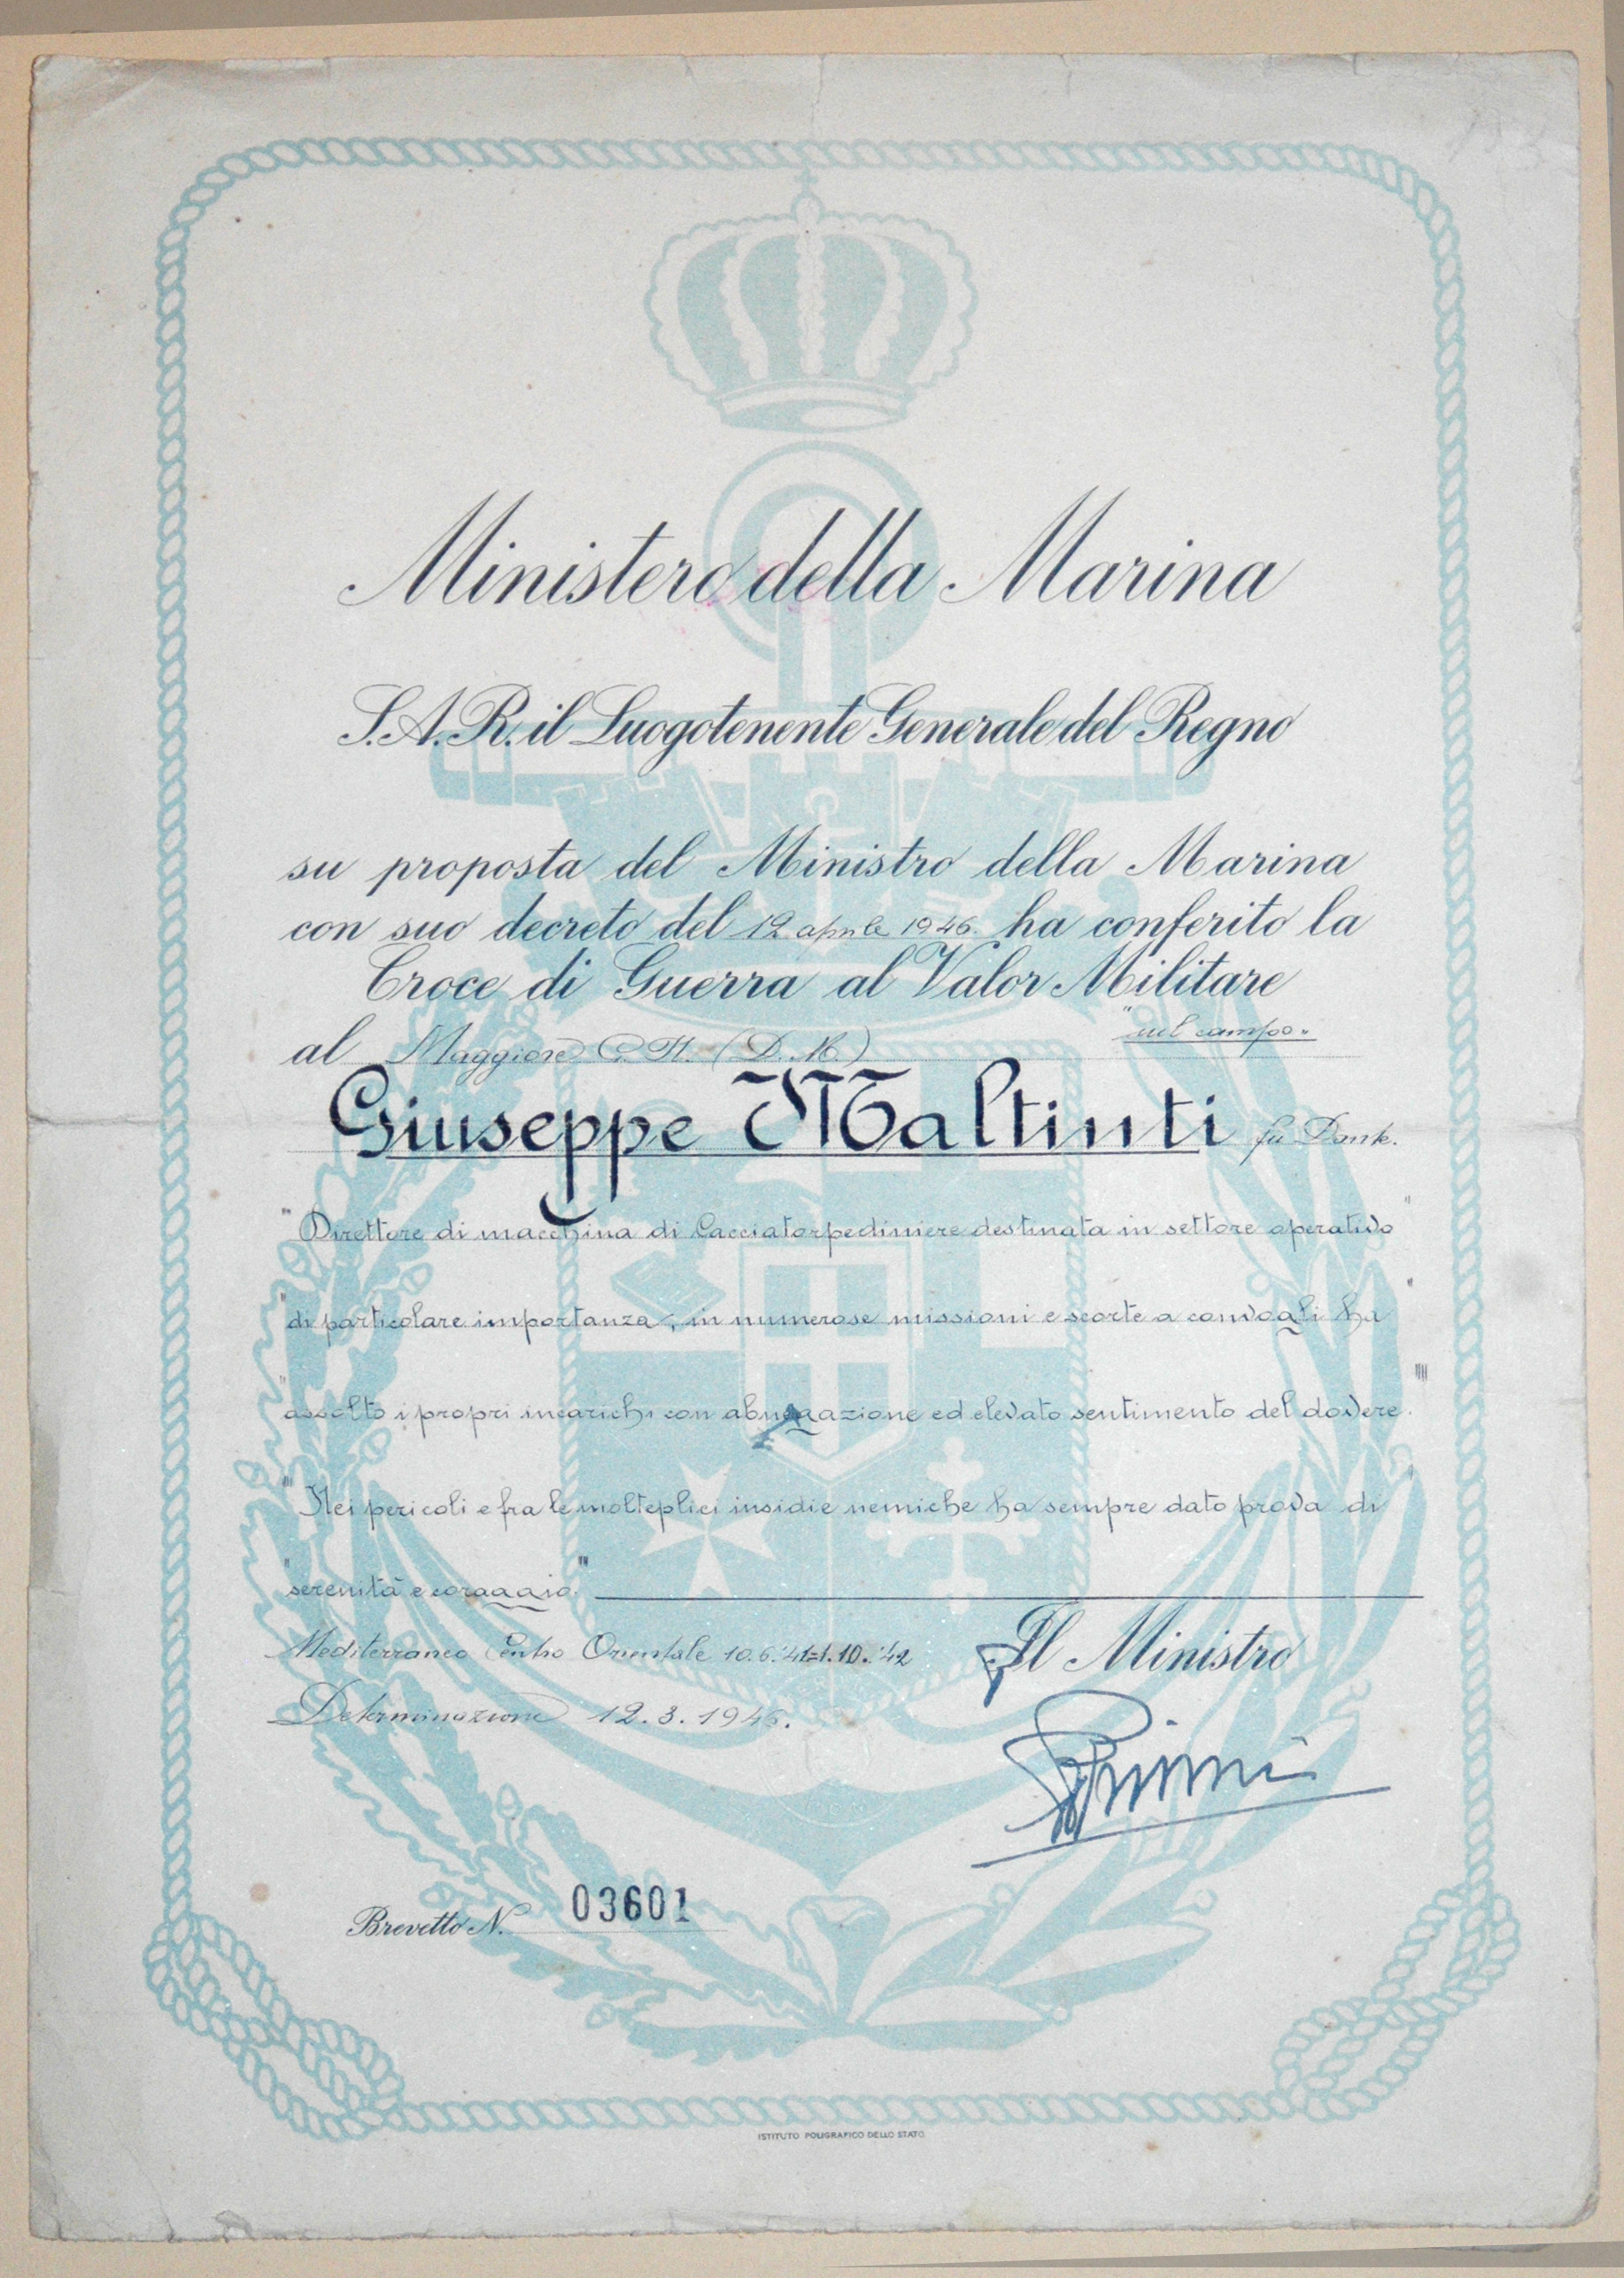 Ministero della Marina
S.A.R. il Luogotenente Generale del Regno
su proposta del Ministro della Marina
con suo decreto del 12 aprile 1946. ha conferito la
Croce di Guerra al Valor Militare
"sul campo"
al Maggiore (D.M.)
Giuseppe Maltinti fu Dante.
"Direttore di macchina di Cacciatorpediniere destinata in settore operativo"
"di particolare importanza, in numerose missioni e scorte a convogli ha"
"assolto i propri incarichi con abnegazione ed elevato sentimento del dovere."
"Nei pericoli e fra le molteplici insidie nemiche ha sempre dato prova di"
"serenità e coraggio."
Mediterraneo Centro Orientale 10.6.'41=1.10.'42
Determinazione 12.3.1946.
Il Ministro
Brevetto N. 03601
ISTITUTO POLIGRAFICO DELLO STATO